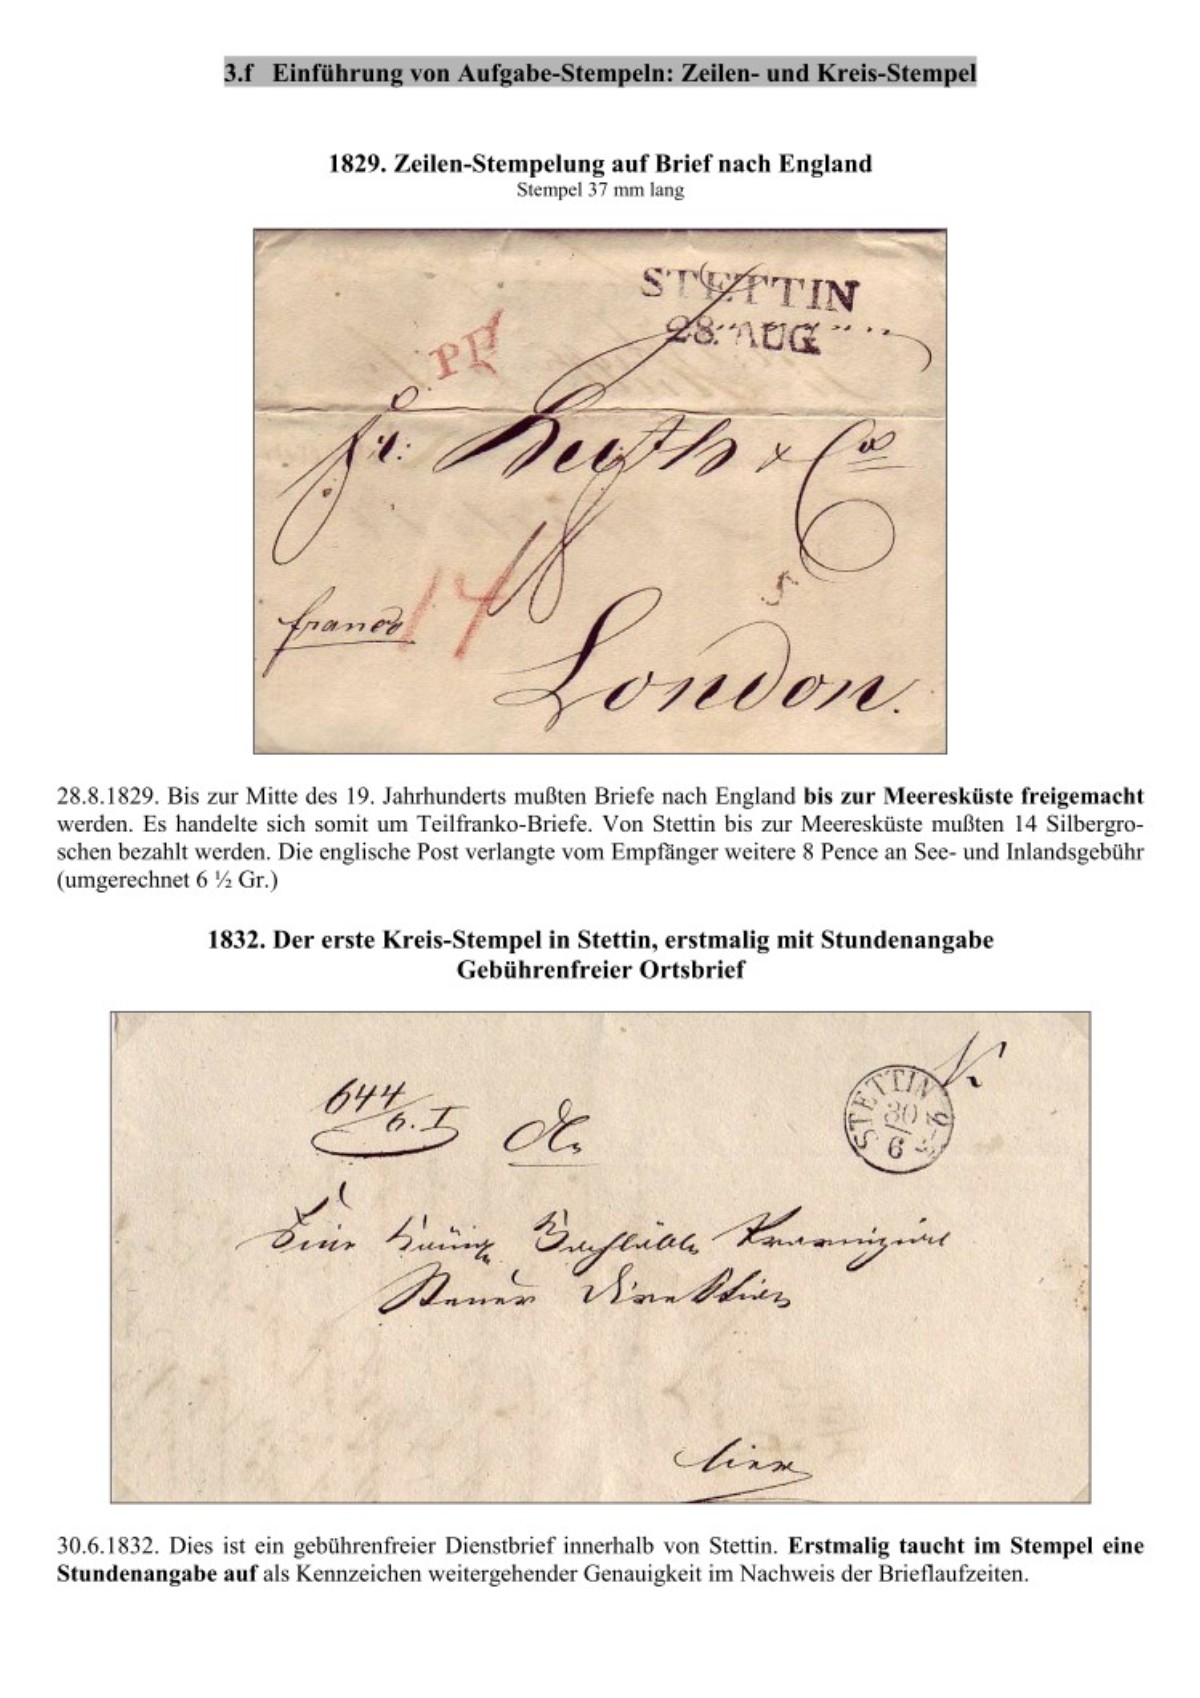 3.f Einführung von Aufgabe-Stempeln: Zeilen- und Kreis-Stempel
1829. Zeilen-Stempelung auf Brief nach England
Stempel 37 mm lang
STETTIN
28. AUG
PP
& Co
franco 14
London.
28.8.1829. Bis zur Mitte des 19. Jahrhunderts mußten Briefe nach England bis zur Meeresküste freigemacht
werden. Es handelte sich somit um Teilfranko-Briefe. Von Stettin bis zur Meeresküste mußten 14 Silbergro-
schen bezahlt werden. Die englische Post verlangte vom Empfänger weitere 8 Pence an See- und Inlandsgebühr
(umgerechnet 6 ½ Gr.)
1832. Der erste Kreis-Stempel in Stettin, erstmalig mit Stundenangabe
Gebührenfreier Ortsbrief
644
6. I
STETTIN
30
6
Eine König Hochlöbl. Provinzial
Steuer Direktion
hier
30.6.1832. Dies ist ein gebührenfreier Dienstbrief innerhalb von Stettin. Erstmalig taucht im Stempel eine
Stundenangabe auf als Kennzeichen weitergehender Genauigkeit im Nachweis der Brieflaufzeiten.